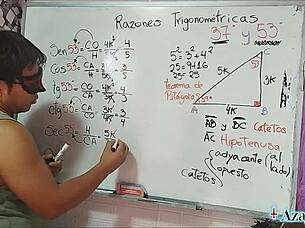 Razones Trigonométricas
37° y 53°
Sen 53° = CO/H = 4K/5K = 4/5
Cos 53° = CA/H = 3K/5K = 3/5
tg 53° = CO/CA = 4K/3K = 4/3
ctg 53° = CA/CO = 3K/4K = 3/4
Sec 53° = H/CA = 5K
5² = 3² + 4²
25 = 9 + 16
25 = 25
teorema de
Pitágoras
5K
3K
4K
A
B
AB y BC Catetos
AC Hipotenusa
Catetos
adyacente (al lado)
opuesto
+Aza